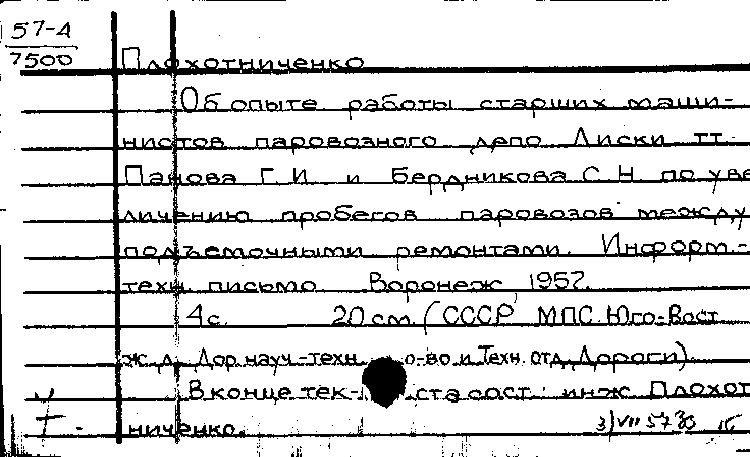 57-4
7500
Плохотниченко
Об опыте работы старших маши-
нистов паровозного депо Лиски тт.
Панова Г.И. и Бердникова С.Н. по уве
личению пробегов паровозов между
подъемочными ремонтами. Информ.-
техн. письмо Воронеж, 1957.
4 с. 20 см. (СССР МПС. Юго-Вост.
ж.д. Дор. науч.-техн. о-во и Техн. отд. Дороги).
В конце тек-ста сост.: инж. Плохот
ниченко.